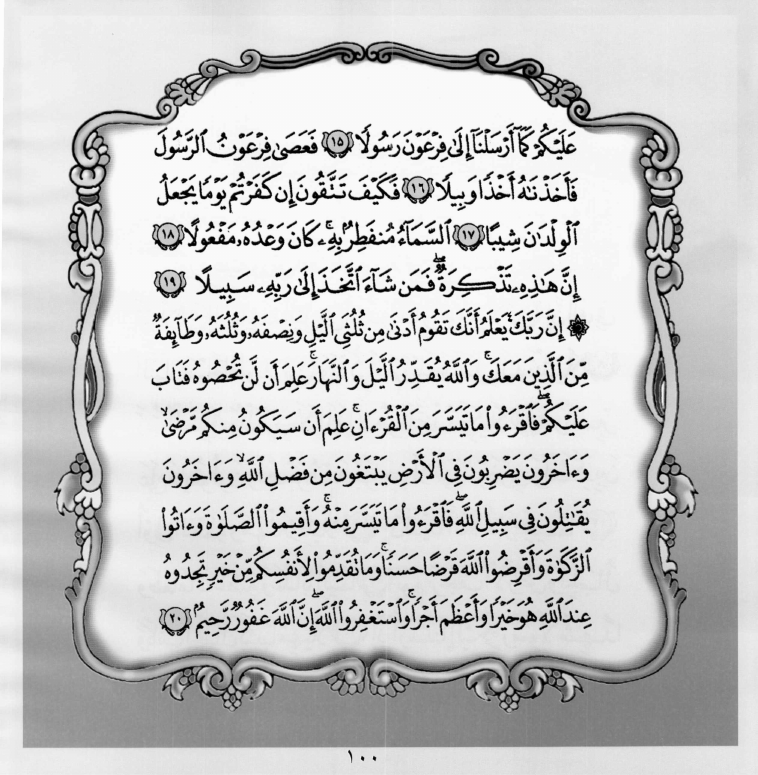 عَلَيْكُمْ كَمَآ أَرْسَلْنَآ إِلَىٰ فِرْعَوْنَ رَسُولًا ١٥ فَعَصَىٰ فِرْعَوْنُ ٱلرَّسُولَ
فَأَخَذْنَـٰهُ أَخْذًا وَبِيلًا ١٦ فَكَيْفَ تَتَّقُونَ إِن كَفَرْتُمْ يَوْمًا يَجْعَلُ
ٱلْوِلْدَٰنَ شِيبًا ١٧ ٱلسَّمَآءُ مُنفَطِرٌۢ بِهِۦ ۚ كَانَ وَعْدُهُۥ مَفْعُولًا ١٨
إِنَّ هَـٰذِهِۦ تَذْكِرَةٌ ۖ فَمَن شَآءَ ٱتَّخَذَ إِلَىٰ رَبِّهِۦ سَبِيلًا ١٩
۞ إِنَّ رَبَّكَ يَعْلَمُ أَنَّكَ تَقُومُ أَدْنَىٰ مِن ثُلُثَىِ ٱلَّيْلِ وَنِصْفَهُۥ وَثُلُثَهُۥ وَطَآئِفَةٌ
مِّنَ ٱلَّذِينَ مَعَكَ ۚ وَٱللَّهُ يُقَدِّرُ ٱلَّيْلَ وَٱلنَّهَارَ ۚ عَلِمَ أَن لَّن تُحْصُوهُ فَتَابَ
عَلَيْكُمْ ۖ فَٱقْرَءُوا۟ مَا تَيَسَّرَ مِنَ ٱلْقُرْءَانِ ۚ عَلِمَ أَن سَيَكُونُ مِنكُم مَّرْضَىٰ ۙ
وَءَاخَرُونَ يَضْرِبُونَ فِى ٱلْأَرْضِ يَبْتَغُونَ مِن فَضْلِ ٱللَّهِ ۙ وَءَاخَرُونَ
يُقَـٰتِلُونَ فِى سَبِيلِ ٱللَّهِ ۖ فَٱقْرَءُوا۟ مَا تَيَسَّرَ مِنْهُ ۚ وَأَقِيمُوا۟ ٱلصَّلَوٰةَ وَءَاتُوا۟
ٱلزَّكَوٰةَ وَأَقْرِضُوا۟ ٱللَّهَ قَرْضًا حَسَنًا ۚ وَمَا تُقَدِّمُوا۟ لِأَنفُسِكُم مِّنْ خَيْرٍ تَجِدُوهُ
عِندَ ٱللَّهِ هُوَ خَيْرًا وَأَعْظَمَ أَجْرًا ۚ وَٱسْتَغْفِرُوا۟ ٱللَّهَ ۖ إِنَّ ٱللَّهَ غَفُورٌ رَّحِيمٌۢ ٢٠
١٠٠